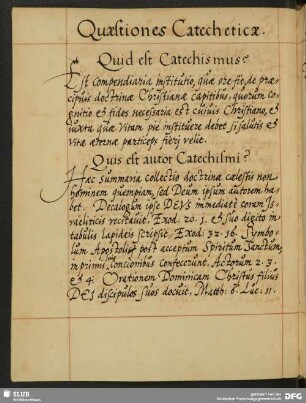 Quæstiones Catecheticæ.
Quid est Catechismus?
Est Compendiaria institutio, quæ ore fit, de præ-
cipuis doctrinæ Christianæ capitibus, quorum co-
gnitio et fides necessaria est cuiuis Christiano, et
iuxta quæ Vitam pie instituere debet, si salutis et
Vitæ æternæ particeps fierj velit.
Quis est autor Catechismi?
Hæc Summaria collectio doctrinæ cælestis non
hominem quempiam, sed Deum ipsum autorem ha-
bet. Decalogum ipse DEVS immediatè coram Is-
raëliticis recitauit. Exod. 20. j. et suo digito in
tabulis lapideis scripsit. Exod: 32. 16. Symbo-
lum Apostolicum post acceptum Spiritum Sanctum,
inprimis suis Concionibus confecerunt. Actorum 2. 3.
et 4. Orationem Dominicam Christus filius
DEI discipulos suos docuit. Matth: 6. Luc: 11.
SLUB
DFG